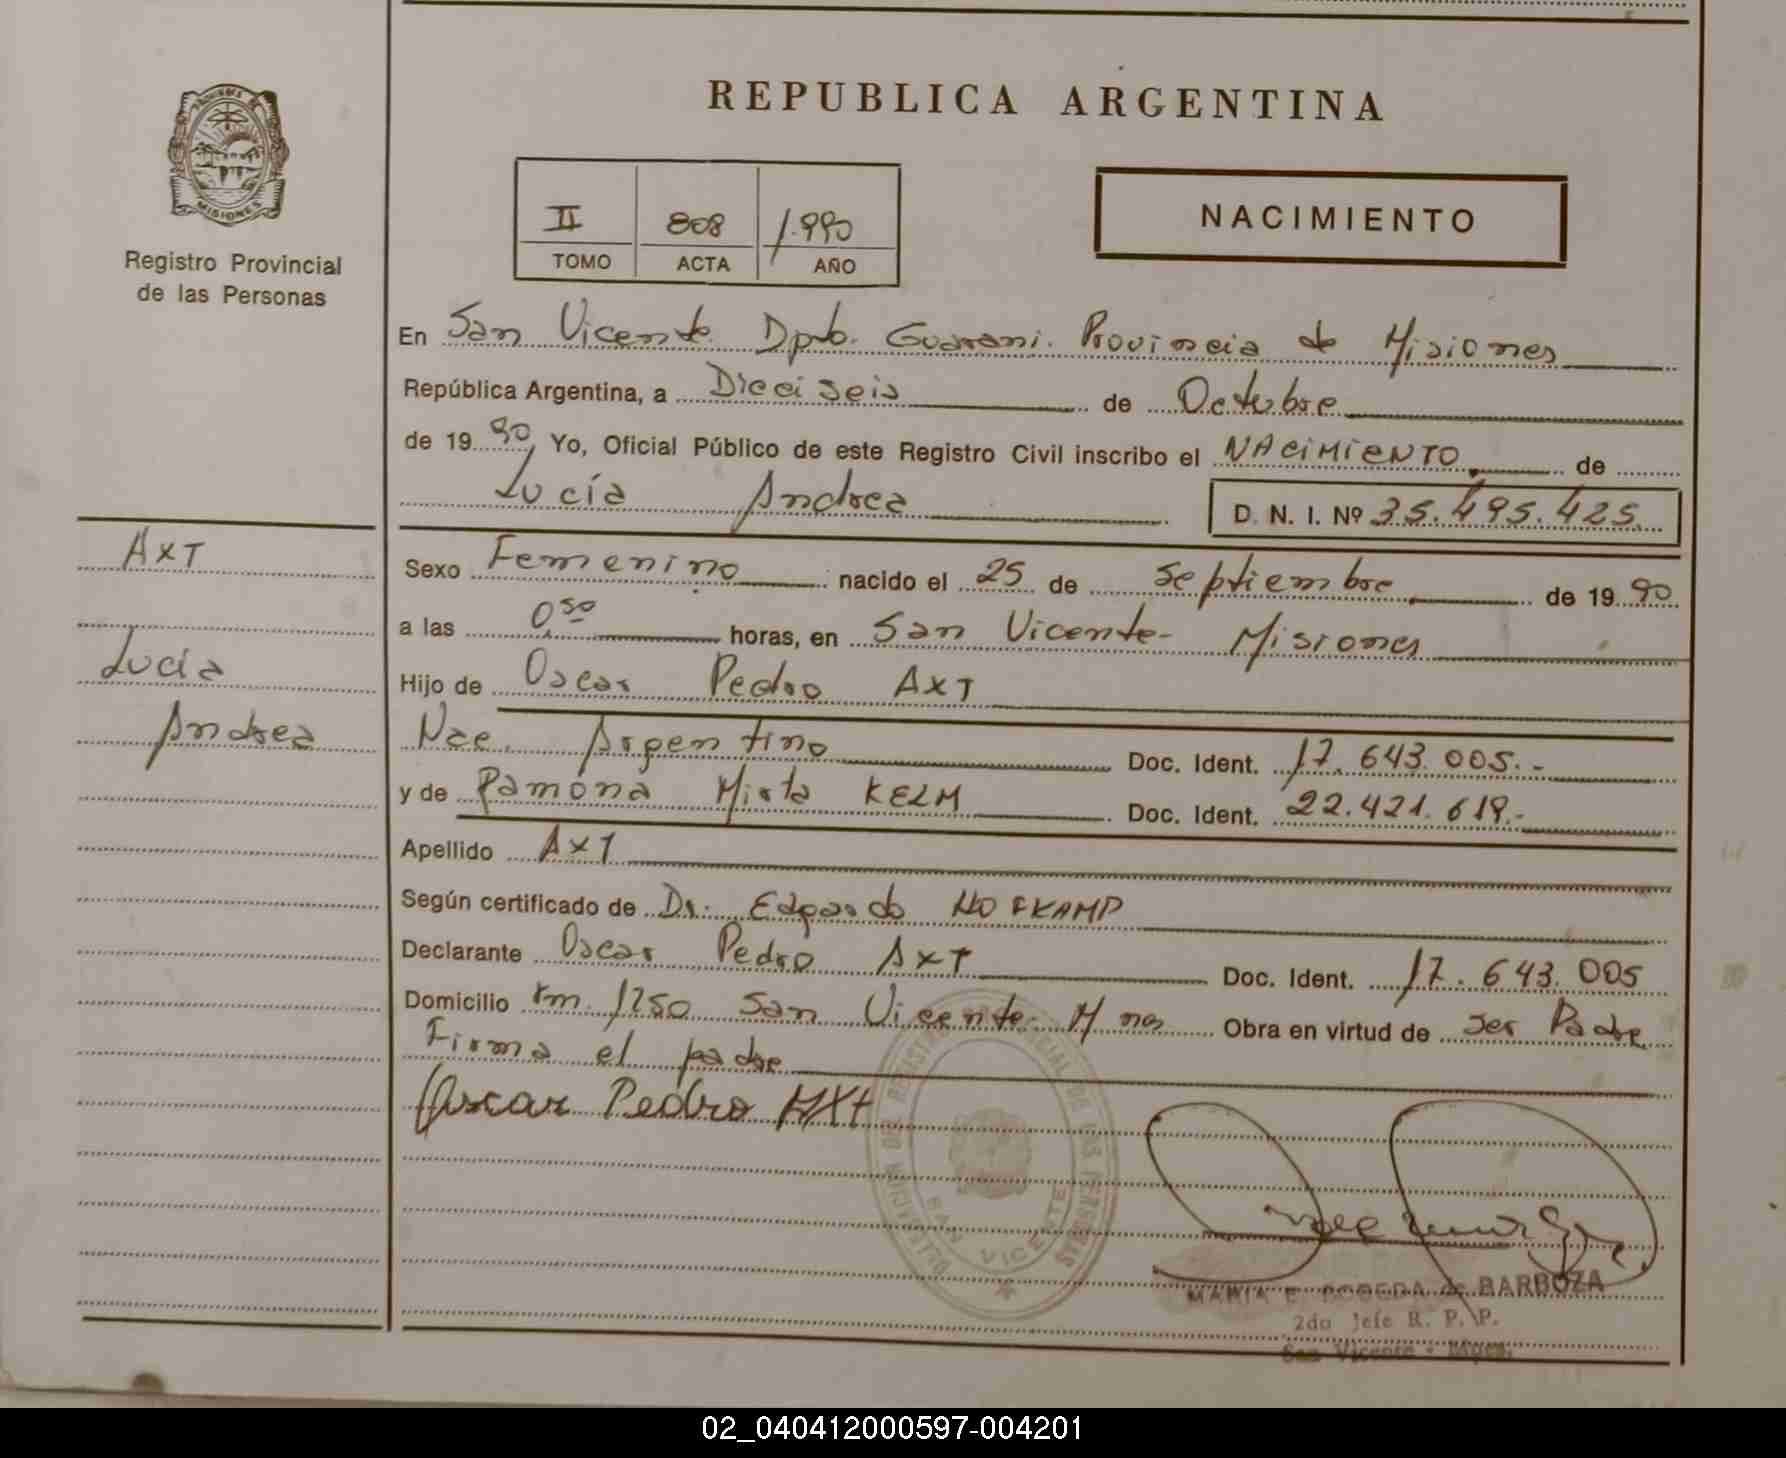 PROVINCIA DE
MISIONES
Registro Provincial
de las Personas
REPUBLICA ARGENTINA
II 808 1.990
TOMO ACTA AÑO
NACIMIENTO
En San Vicente Dpto. Guarani. Provincia de Misiones
República Argentina, a Dieciseis de Octubre
de 19 90 Yo, Oficial Público de este Registro Civil inscribo el NACIMIENTO de
Lucía Andrea D. N. I. Nº 35.495.425
AXT
Lucía
Andrea
Sexo Femenino nacido el 25 de Septiembre de 19 90
a las 0 50 horas, en San Vicente- Misiones
Hijo de Oscar Pedro AXT
Nac. Argentino Doc. Ident. 17.643.005.-
y de Ramóna Mirta KELM Doc. Ident. 22.421.619.-
Apellido AXT
Según certificado de Dr. Edgardo HOFKAMP
Declarante Oscar Pedro AXT Doc. Ident. 17.643.005
Domicilio Km. 1250 San Vicente Mnes Obra en virtud de ser Padre
Firma el padre
Oscar Pedro AXt
DELEGACION DEL REGISTRO PROVINCIAL DE LAS PERSONAS
SAN VICENTE
MARIA E. POBEDA de BARBOZA
2do Jefe R. P. P.
San Vicente - Mnes.
02_040412000597-004201